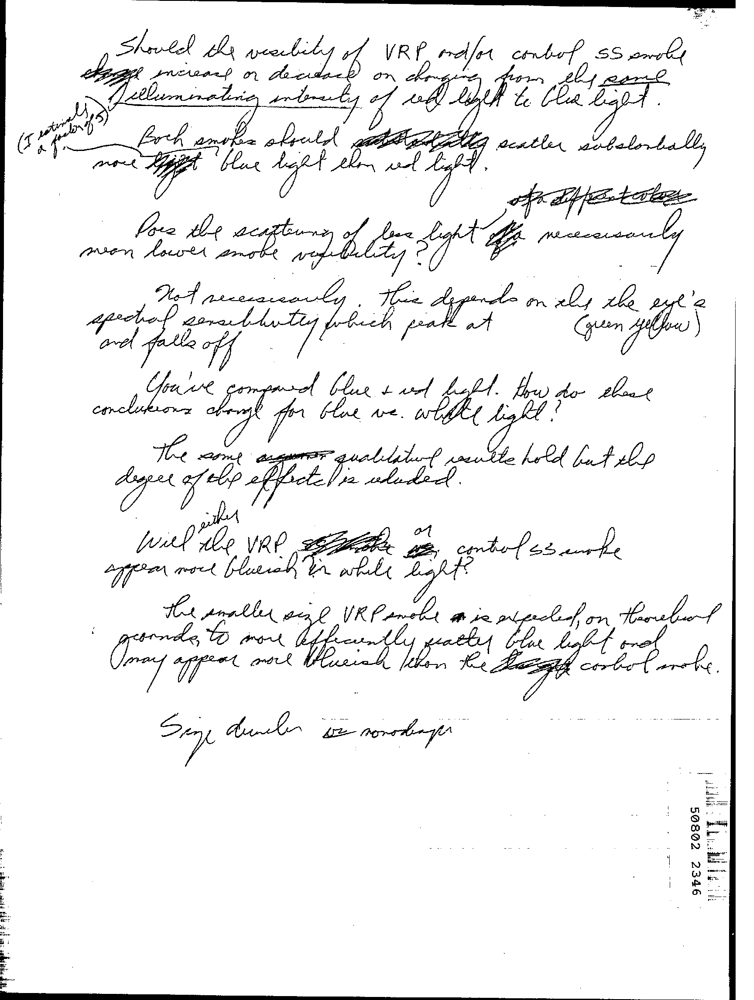 Should the visibility of VRP and/or control SS smoke
increase or decrease on changing from the same
illuminating intensity of red light to blue light.
(I estimate
a factor of 5)
Both smokes should scatter substantially
more blue light than red light.
Does the scattering of less light necessarily
mean lower smoke visibility?
Not necessarily. This depends on the the eye's
spectral sensibility which peak at (green yellow)
and falls off
You've compared blue + red light. How do these
conclusions change for blue vs. white light?
The same qualitative results hold but the
degree of the effects is reduced.
either
Will the VRP or control SS smoke
appear more blueish in white light?
The smaller size VRP smoke is expected, on theoretical
grounds, to more efficiently scatter blue light and
may appear more blueish than the control smoke.
Size
50802 2346